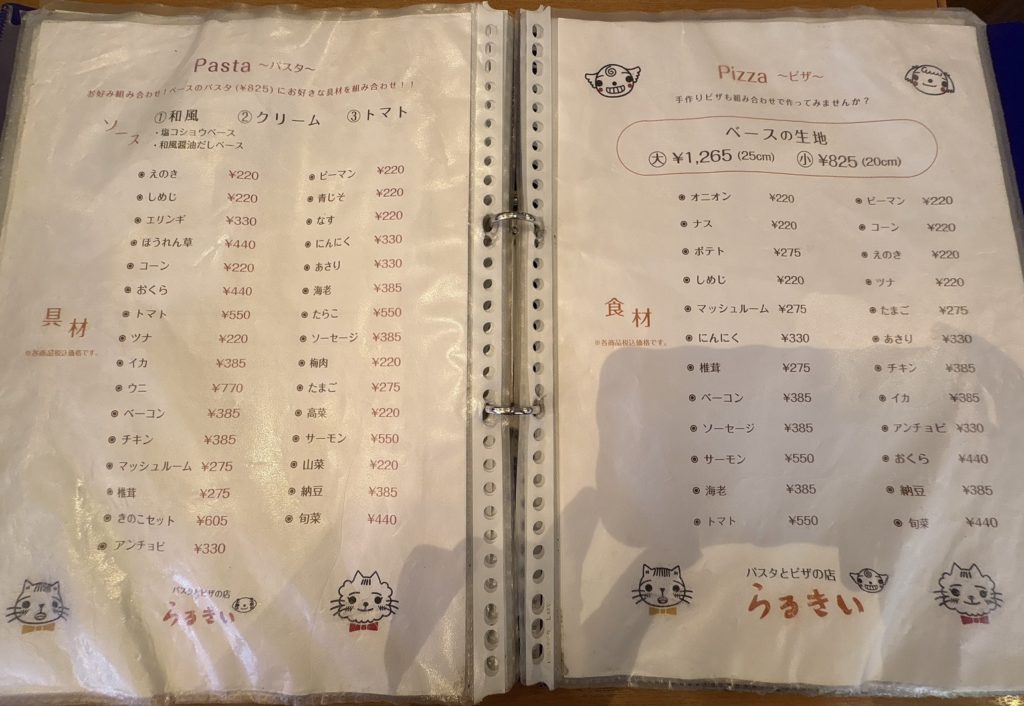 Pasta ～パスタ～
お好み組み合わせ！ベースのパスタ(¥825)にお好きな具材を組み合わせ！！
ソース
①和風 ②クリーム ③トマト
・塩コショウベース
・和風醤油だしベース
具材
※各商品税込価格です。
えのき ¥220
しめじ ¥220
エリンギ ¥330
ほうれん草 ¥440
コーン ¥220
おくら ¥440
トマト ¥550
ツナ ¥220
イカ ¥385
ウニ ¥770
ベーコン ¥385
チキン ¥385
マッシュルーム ¥275
椎茸 ¥275
きのこセット ¥605
アンチョビ ¥330
ピーマン ¥220
青じそ ¥220
なす ¥220
にんにく ¥330
あさり ¥330
海老 ¥385
たらこ ¥550
ソーセージ ¥385
梅肉 ¥220
たまご ¥275
高菜 ¥220
サーモン ¥550
山菜 ¥220
納豆 ¥385
旬菜 ¥440
パスタとピザの店
らるきい
Pizza ～ピザ～
手作りピザも組み合わせで作ってみませんか？
ベースの生地
大 ¥1,265 (25cm) 小 ¥825 (20cm)
食材
※各商品税込価格です。
オニオン ¥220
ナス ¥220
ポテト ¥275
しめじ ¥220
マッシュルーム ¥275
にんにく ¥330
椎茸 ¥275
ベーコン ¥385
ソーセージ ¥385
サーモン ¥550
海老 ¥385
トマト ¥550
ピーマン ¥220
コーン ¥220
えのき ¥220
ツナ ¥220
たまご ¥275
あさり ¥330
チキン ¥385
イカ ¥385
アンチョビ ¥330
おくら ¥440
納豆 ¥385
旬菜 ¥440
パスタとピザの店
らるきい